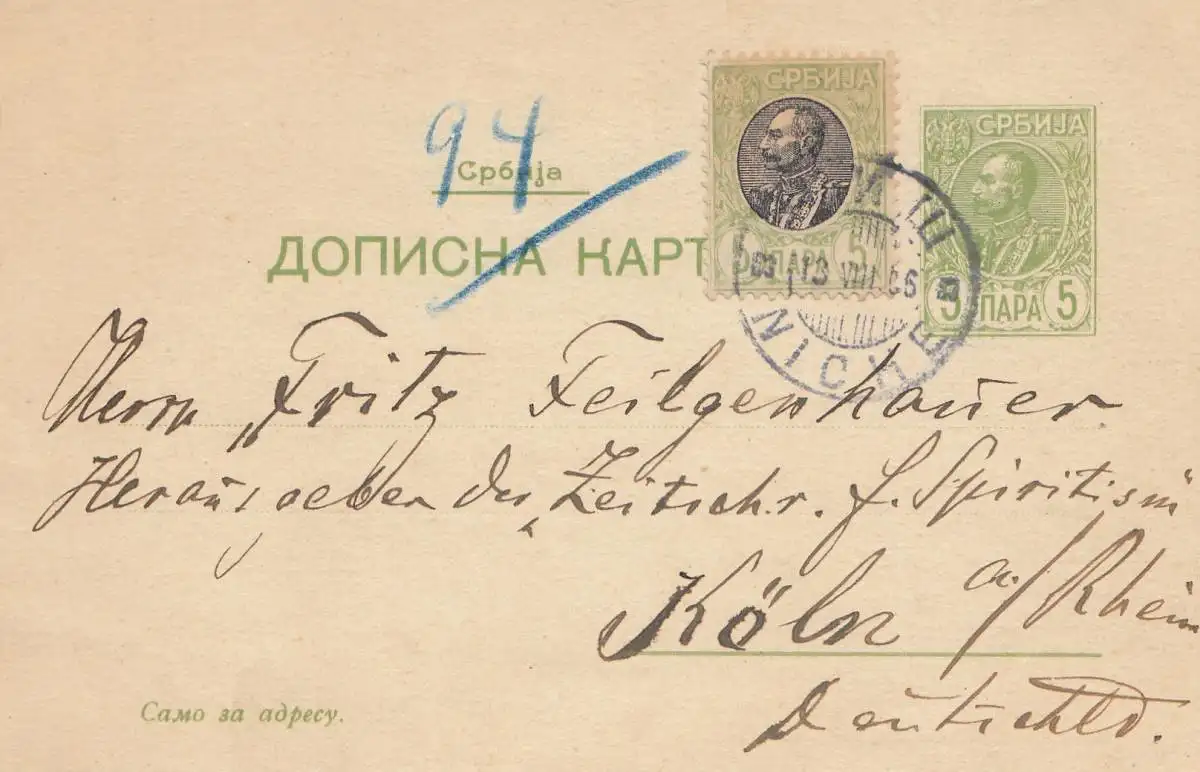 94
Србија
ДОПИСНА КАРТ
СРБИЈА
5 ПАРА 5
СРБИЈА
5 ПАРА 5
НИШ
13 VIII 06
NICHE
Herrn Fritz Feilgenhauer
Herausgeber der „Zeitschr. f. Spiritism
Köln a/Rhein
Deutschld.
Само за адресу.